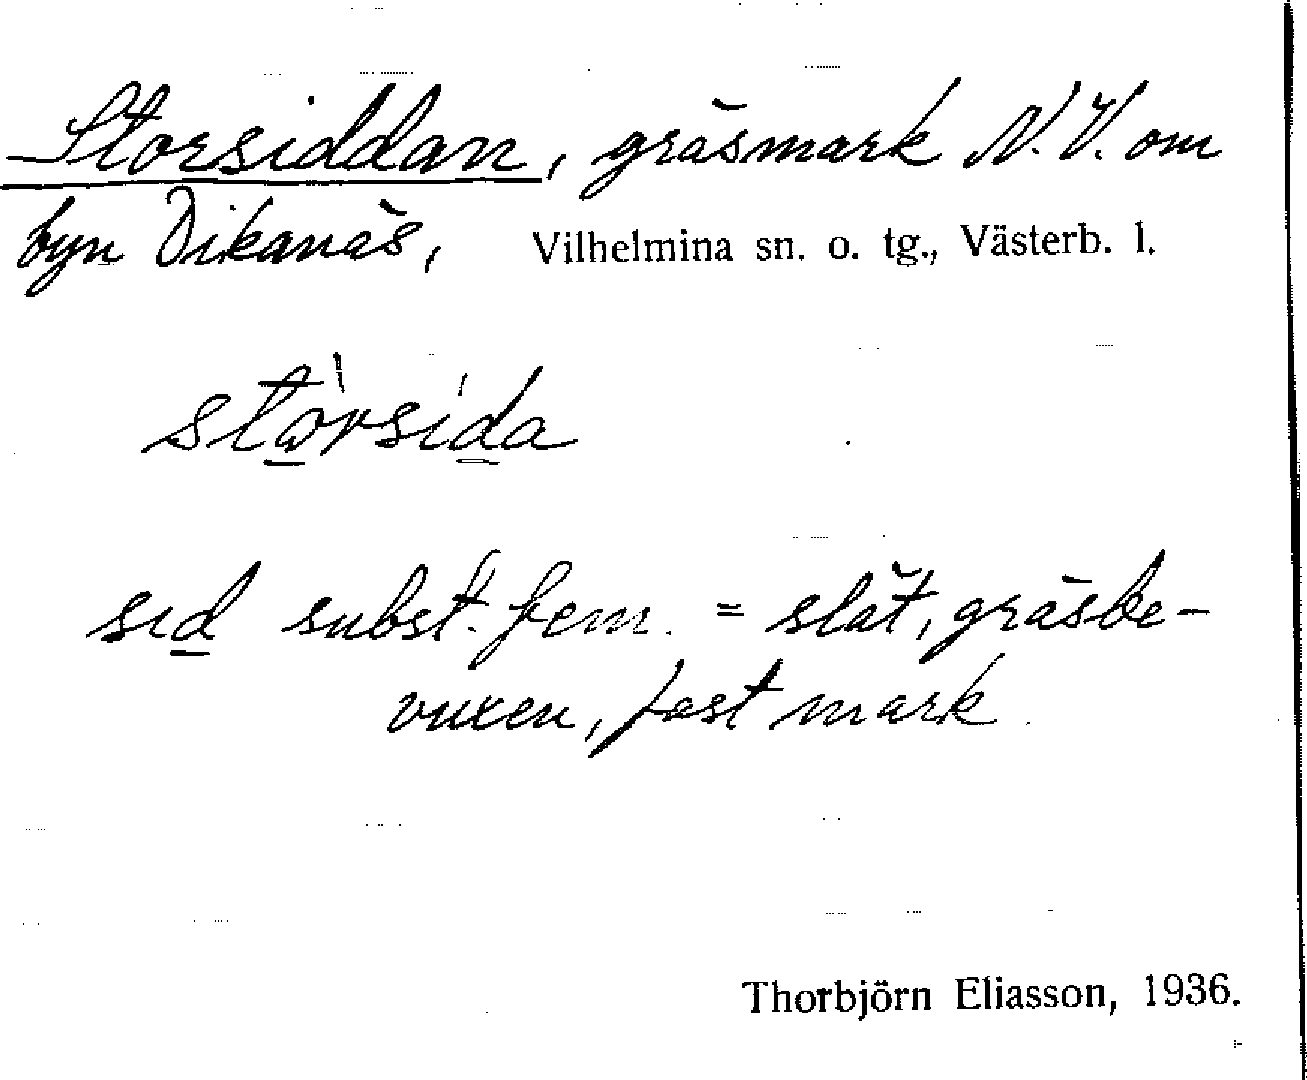 Storsiddan, gräsmark N.V. om
byn Dikanäs, Vilhelmina sn. o. tg., Västerb. l.
sid subst. fem. = slät, gräsbe-
vuxen, fast mark.
Thorbjörn Eliasson, 1936.